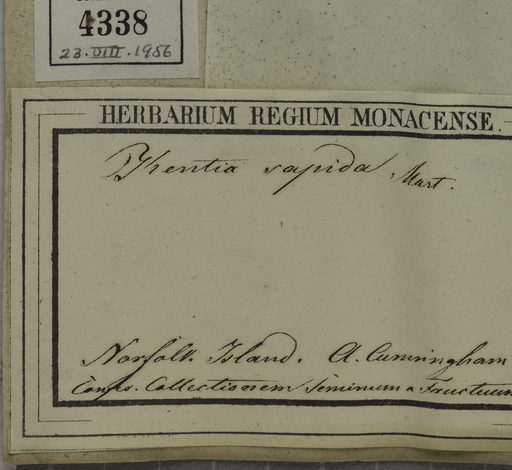 4338
23.VIII.1956
HERBARIUM REGIUM MONACENSE.
Kentia sapida Mart.
Norfolk. Island. A. Cunningham
Collectionem Seminum & Fructuum